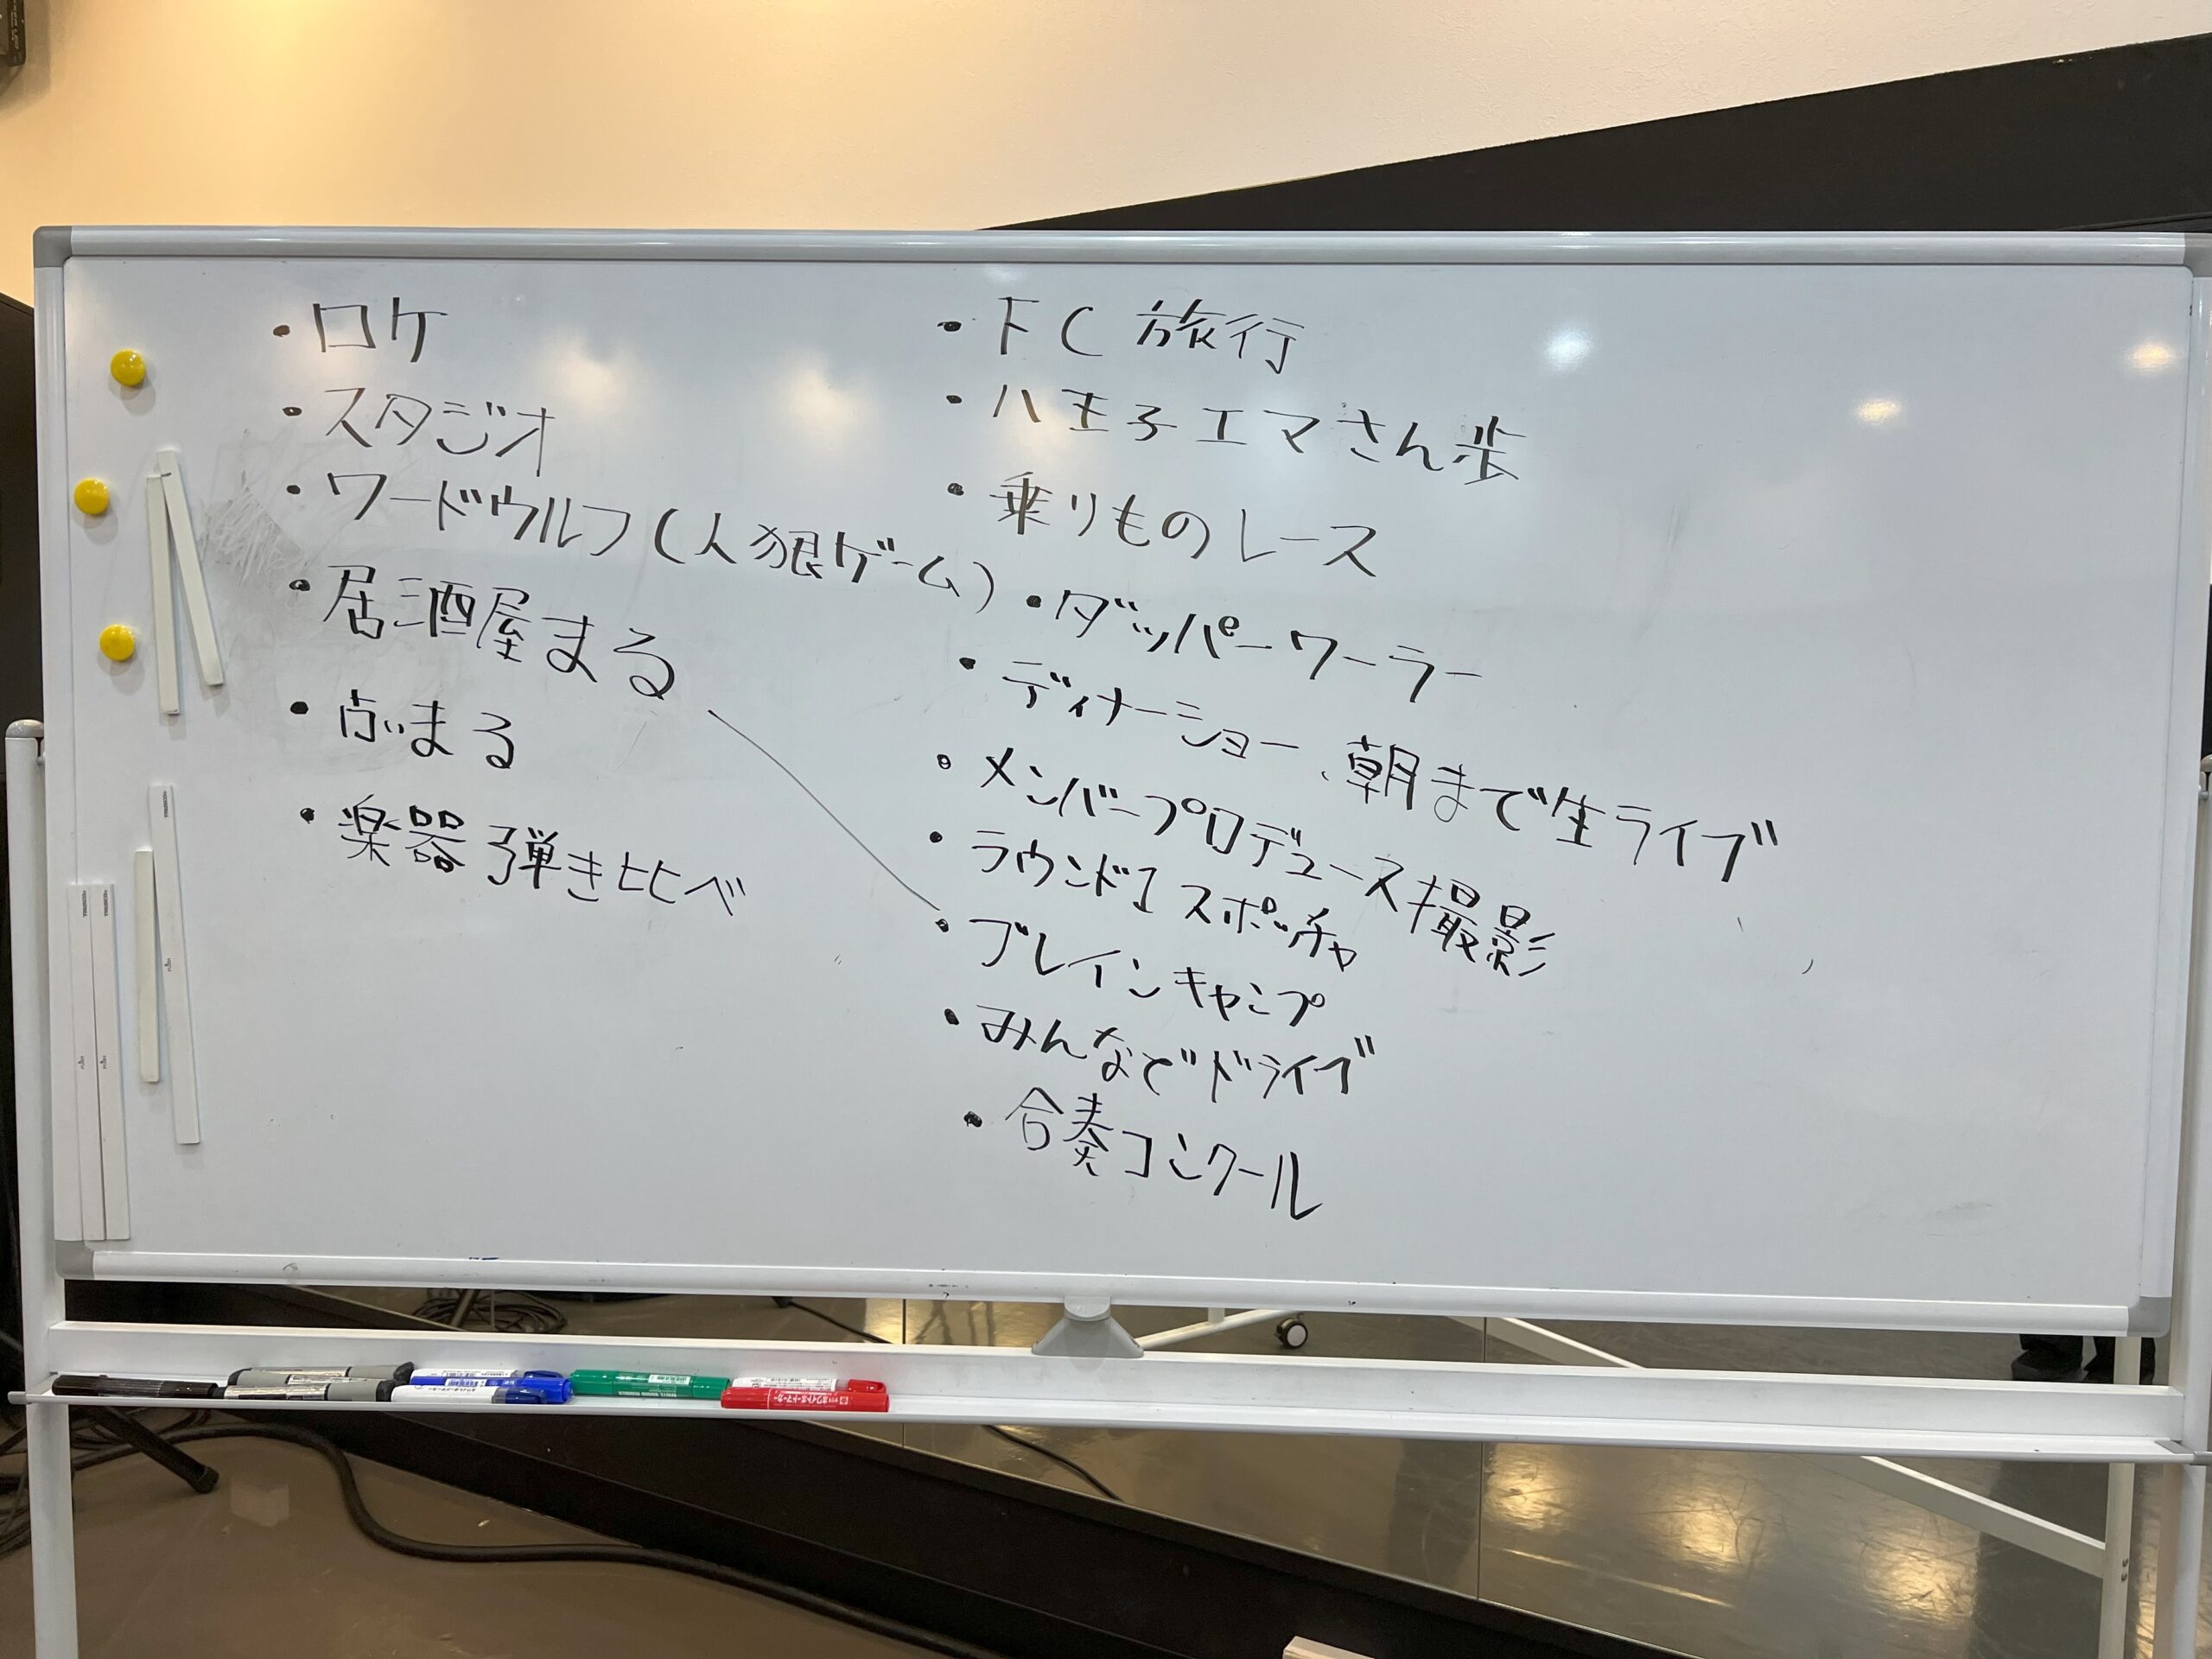 ・ロケ
・スタジオ
・ワードウルフ(人狼ゲーム)
・居酒屋まる
・点いまる
・楽器弾き比べ
・FC旅行
・八王子エマさん歩
・乗りものレース
・ダッパーワーラー
・ディナーショー、朝まで生ライブ
・メンバープロデュース撮影
・ラウンド1スポッチャ
・ブレインキャンプ
・みんなでドライブ
・合奏コンクール